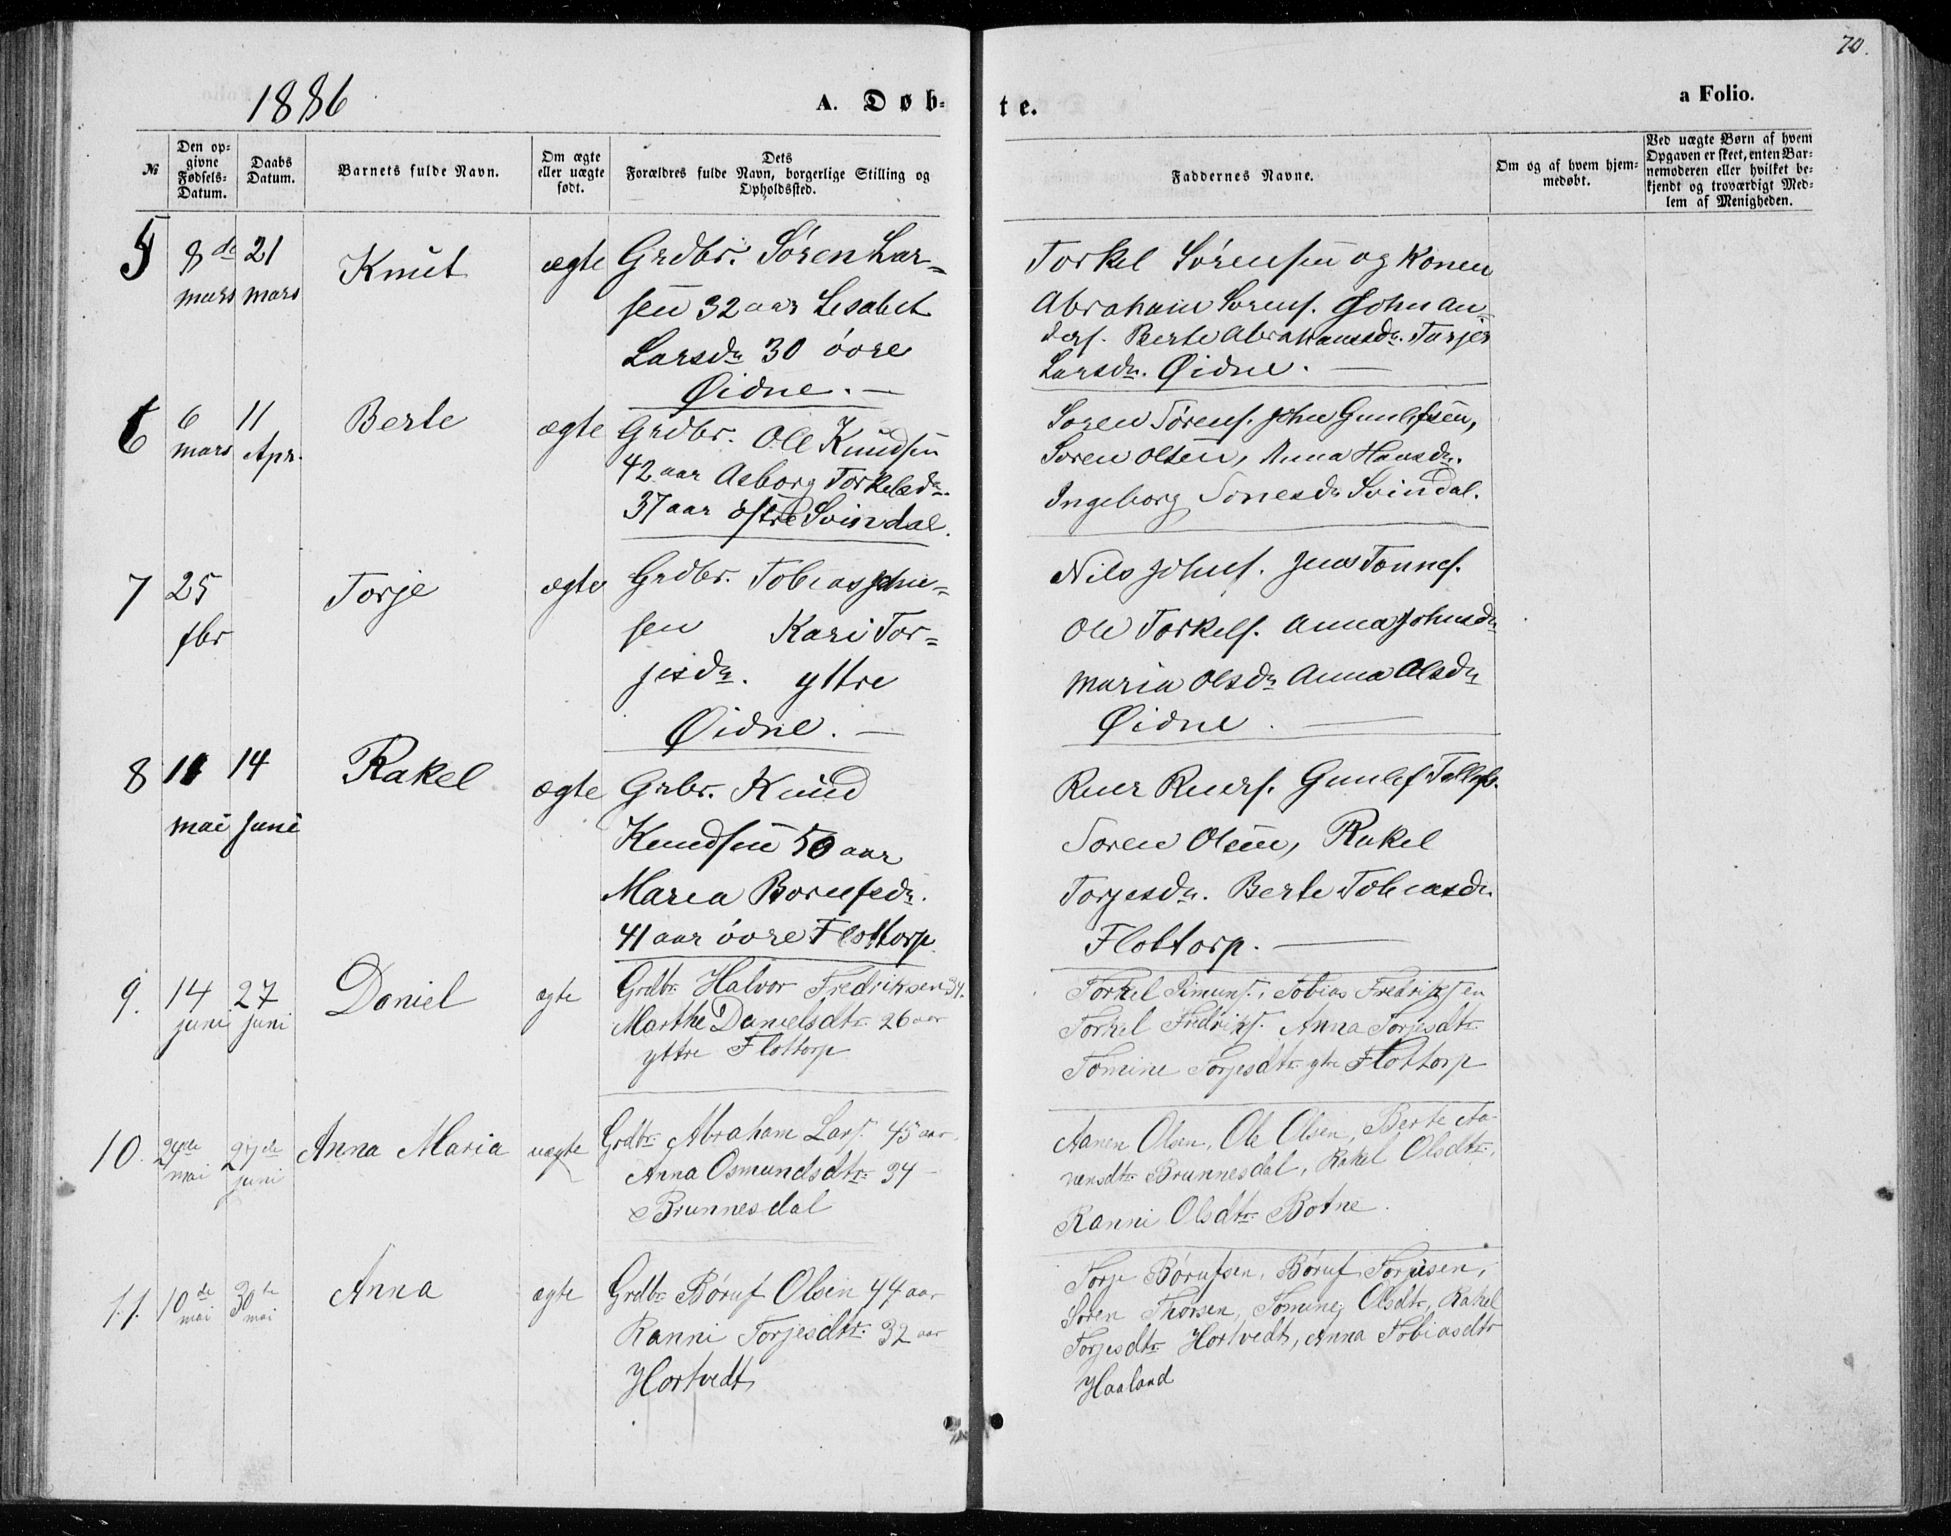 70.
1886
A. Døb-
te.
a Folio.
№
Den op-
givne
Fødsels-
Datum.
Daabs
Datum.
Barnets fulde Navn.
Om ægte
eller uægte
født.
Dets
Forældres fulde Navn, borgerlige Stilling og
Opholdssted.
Faddernes Navne.
Om og af hvem hjem-
medøbt.
Ved uægte Børn af hvem
Opgaven er skeet, enten Bar-
nemoderen eller hvilket be-
kjendt og troværdigt Med-
lem af Menigheden.
5
8de
mars
21
mars
Knut
ægte
Grdbr. Søren Lar-
sen 32 aar Lisabet
Larsdr 30 øvre
Øidne. —
Torkel Sørensen og Konen
Abraham Sørens. John An-
ders. Berte Abrahamsdr. Torjer
Larsdr. Øidne. —
6
6
mars
11
Apr.
Berte
ægte
Grdbr. Ole Knudsen
42 aar Asborg Torkelsdr.
37 aar østre Svindal.
Soren Sørens. John Gunlefsen,
Soren Olsen, Anna Hansdr.
Ingeborg Tonesdr Svindal.
7
25
fbr
Torje
ægte
Grdbr. Tobias John-
sen Kari Tor-
jesdr. yttre
Øidne. —
Nils Johns. Jens Tønnes.
Ole Torkels. Anna Johnsdr
Maria Olsdr Anna Olsdr
Øidne. —
8
11
mai
14
Juni
Rakel
ægte
Grbr. Knud
Knudsen 50 aar
Maria Børufsdr.
41 aar øvre Flottorp.
Ruer Ruers. Gunlef Tallefs.
Soren Olsen, Rakel
Torjesdr. Berte Tobiasdr.
Flottorp. —
9.
14
juni
27
juni
Daniel
ægte
Grdbr. Halvor Fredriksen 34.
Marthe Danielsdtr. 26 aar
yttre Flottorp
Torkel Simuns., Tobias Fredriksen
Torkel Fredriks. Anna Torjesdtr.
Tomine Torjesdtr. ytre Flottorp
10.
24de
mai
27de
juni
Anna Maria
uægte
Grdbr. Abraham Lars. 45 aar
Anna Osmundsdtr. 34 —
Brunnesdal
Aanen Olsen, Ole Olsen, Berte Aa-
nensdtr. Brunnesdal, Rakel Olsdtr.,
Ranni Olsdtr. Botne.
11.
10de
mai
30te
mai
Anna
ægte
Grdbr Børuf Olsen 44 aar
Ranni Torjesdtr. 32 aar
Hortvedt
Torje Børufsen, Børuf Torjusen,
Søren Thorsen, Tomine Olsdtr, Rakel
Torjesdtr Hortvedt, Anna Tobiasdtr
Haaland